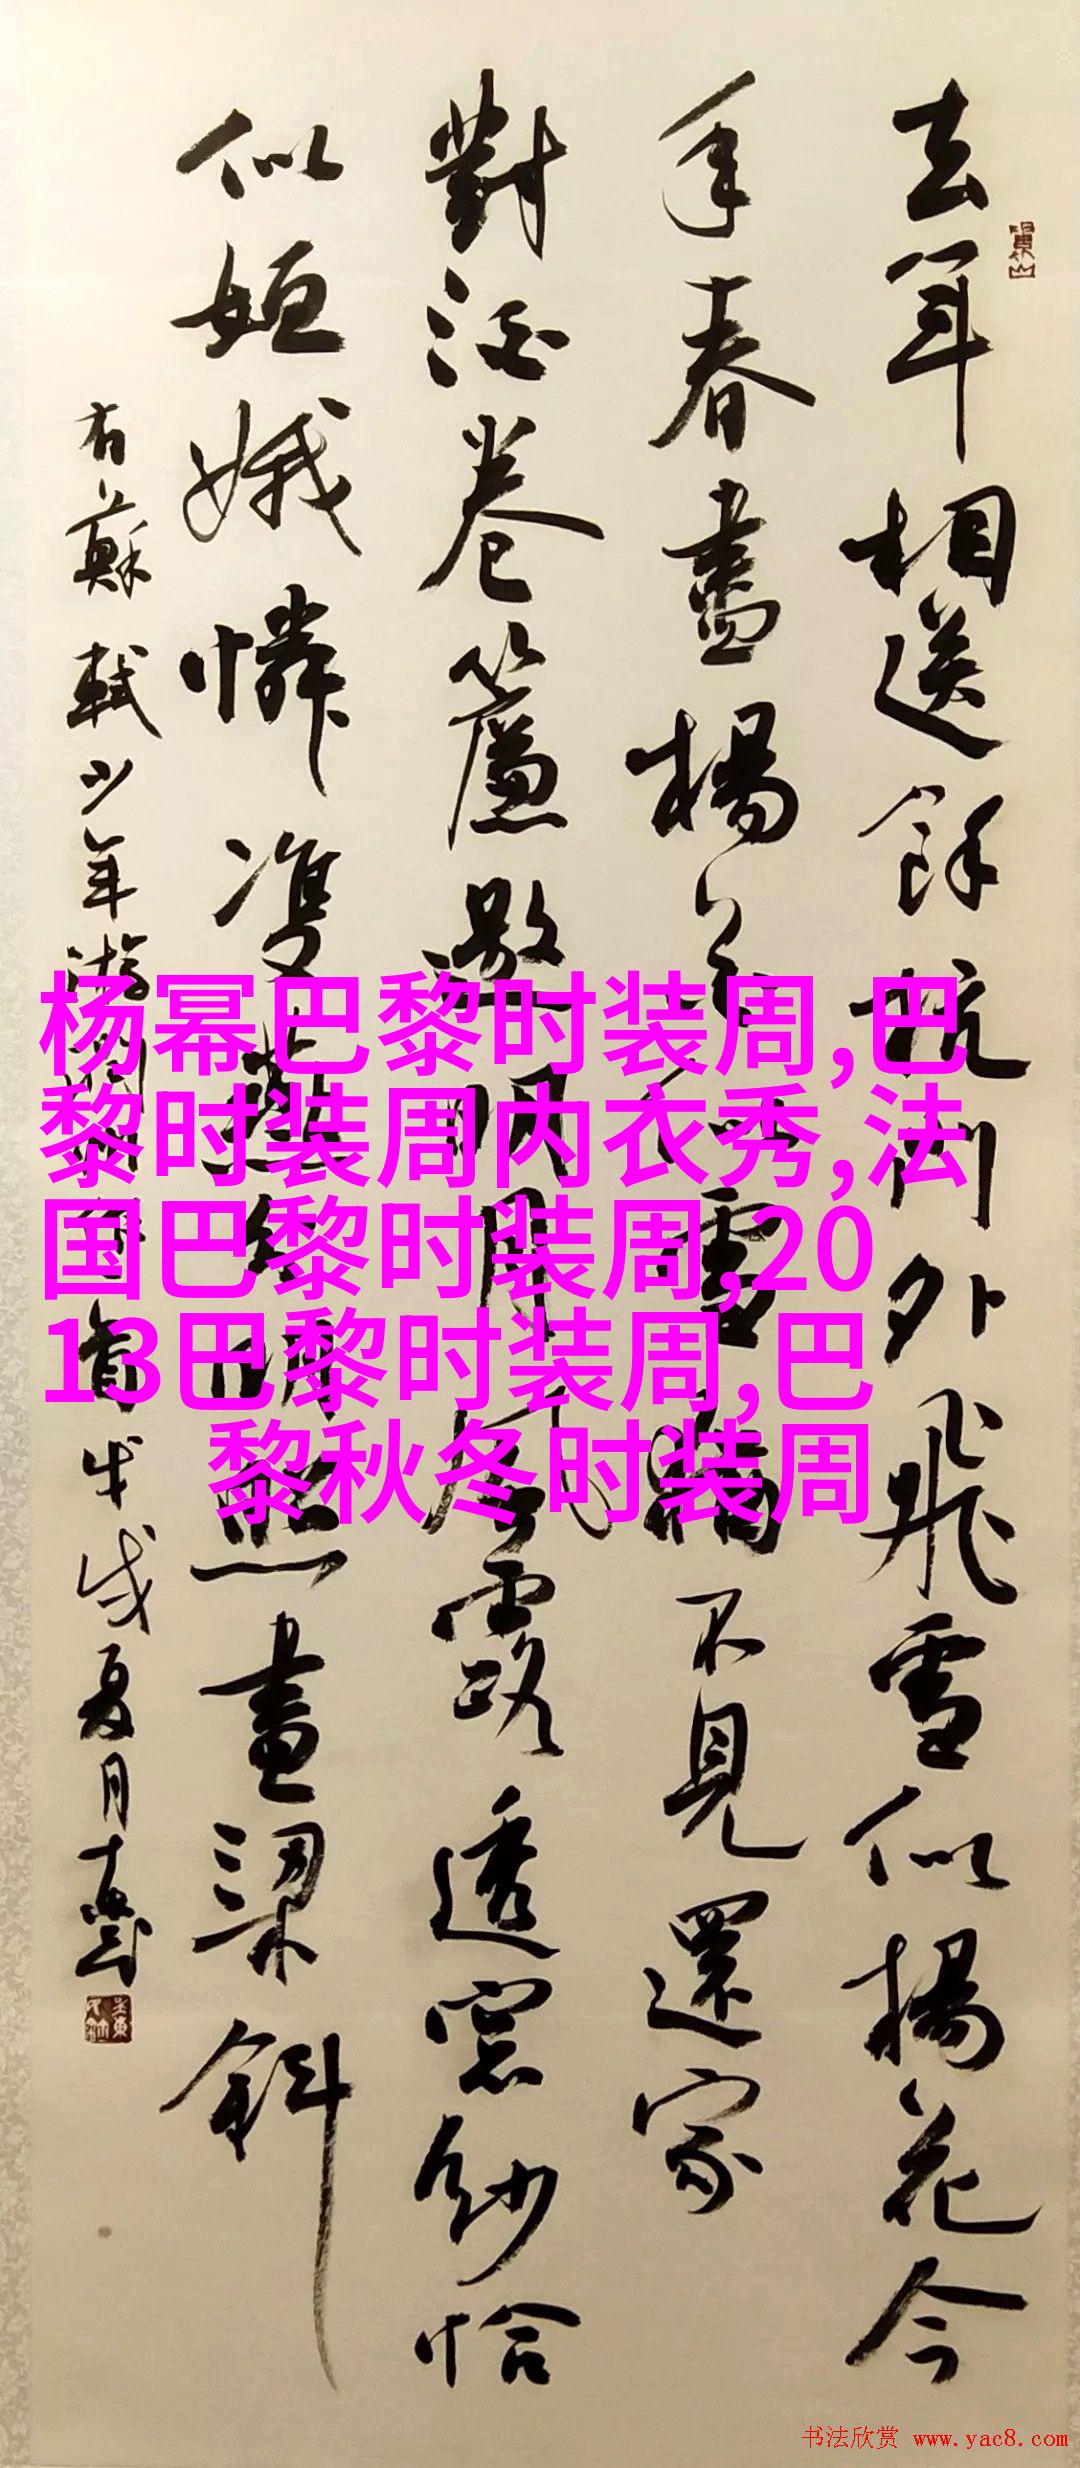 去年相送餘杭門外飛雪似楊花今
年春盡楊花似雪猶不見還家
對酒卷簾邀明月風露透窓紗恰
似姮娥憐雙燕分明照畫梁斜
右蘇軾少年游 戊戌夏月
杨幂巴黎时装周,巴
黎时装周内衣秀,法
国巴黎时装周,20
13巴黎时装周,巴
黎秋冬时装周
书法欣赏 www.yac8.com